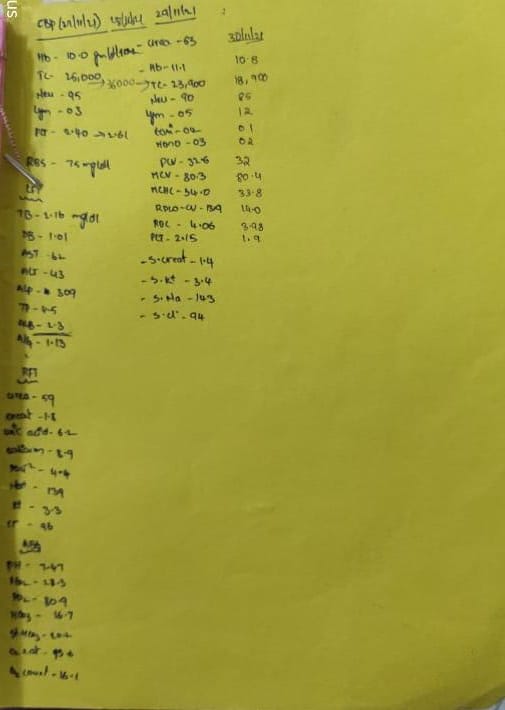 us
CBP (27/11/21) 28/11/21 29/11/21 :
Hb - 10.0 gm/dl
TC - 26,000 → 36000 →
Neu - 95
Lym - 03
PLT - 2.40 → 2.61
RBS - 75 mg/dl
LFT
TB - 2.16 mg/dl
DB - 1.01
AST - 62
ALT - 43
ALP - 309
TP - 4.5
ALB - 2.3
A/G - 1.13
RFT
urea - 59
creat - 1.8
uric acid - 6.2
calcium - 8.9
- 4.4
- 139
K+ - 3.3
Cl- - 98
ABG
PH - 7.47
PCO2 - 23.3
PO2 - 80.9
HCO3 - 16.7
St.HCO3 -
O2 sat -
O2 count - 16.1
urea - 63
- Hb - 11.1
TC - 23,900
Neu - 90
Lym - 05
Eosi - 02
Mono - 03
PCV - 32.6
MCV - 80.3
MCHC - 34.0
RDW-CV - 13.9
RBC - 4.06
PLT - 2.15
- S.creat - 1.4
- S.K+ - 3.4
- S.Na - 143
- S.Cl- - 94
30/11/21
10.8
18,900
85
12
01
02
32
80.4
33.8
14.0
3.98
1.9